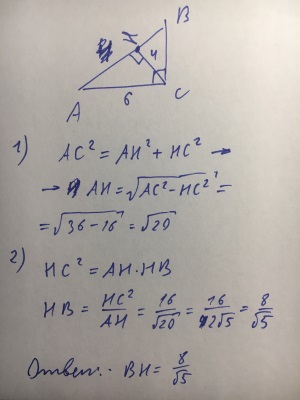 B
H
4
A
6
C
1) AC² = AH² + HC² →
→ AH = √AC² - HC² =
= √36 - 16 = √20
2) HC² = AH · HB
HB = HC²/AH = 16/√20 = 16/2√5 = 8/√5
Ответ: BH = 8/√5